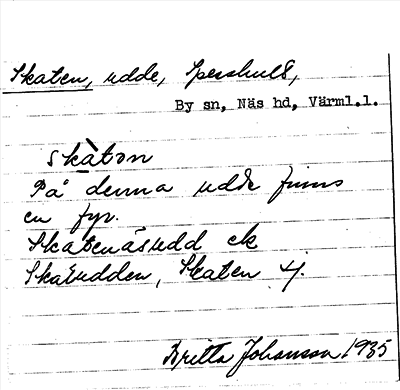 Skaten, udde, Speshult,
By sn, Näs hd, Värml.l.
skàtən
På denna udde finns
en fyr.
Skatenäsudd ek
Skatudden, Skaten 4/
Britta Johansson 1935